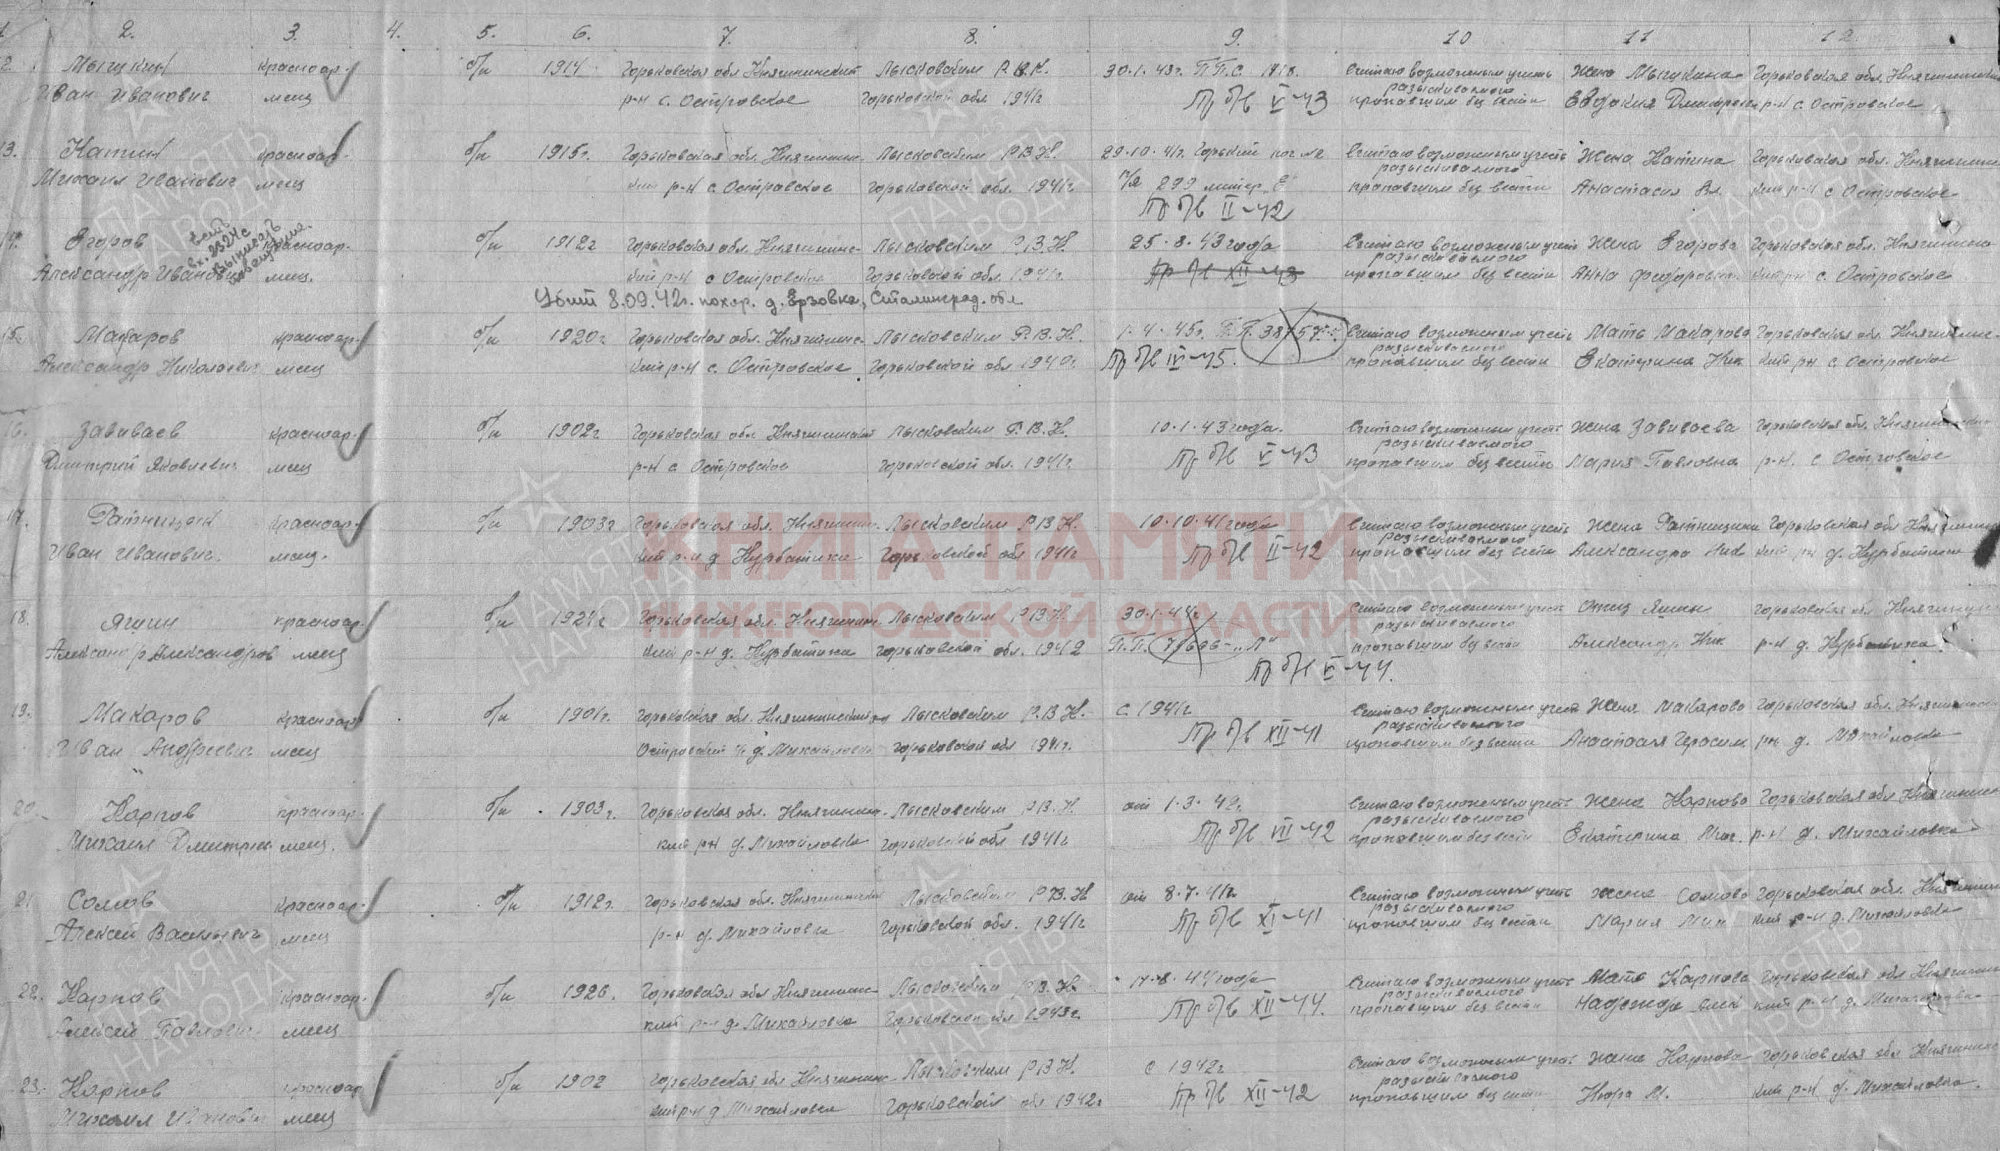 1. 2. 3. 4. 5. 6. 7. 8. 9. 10 11 12.
12. Мышкин красноар- б/п 1914 Горьковская обл Княгининский Лысковским Р.В.К. 30.1.43г. П.П.С. Считаю возможным учесть Жена Мышкина Горьковская обл. Княгининский
разыскиваемого
Иван Иванович меец р-н с. Островское Горьковской обл 1941г Пр б/в V-43 пропавшим без вести Евдокия р-н с. Островское
13. Катин красноар- б/п 1915г. Горьковская обл. Княгинин- Лысковским Р.В.К. 29.10.41г. Горький Считаю возможным учесть Жена Катина Горьковская обл. Княгинин-
разыскиваемого
Михаил Иванович меец кий р-н с Островское Горьковской обл. 1941г п/я 299 литер „Е" пропавшим без вести Анастасия Вл. кий р-н с Островское
Пр б/в II-42
14. Егоров вх. 2324с красноар- б/п 1912г Горьковская обл. Княгининс- Лысковским Р.В.К. 25.8.43 года Считаю возможным учесть Жена Егорова Горьковская обл. Княгининс-
разыскиваемого
Александр Иванович извещение. меец. кий р-н с Островское Горьковской обл. 1941г. Пр б/в XII-43 пропавшим без вести Анна Федоровна кий р-н с. Островское
Убит 8.09.42г. похор. д. Ерзовка, Сталинград. обл
15. Макаров красноар- б/п 1920г Горьковская обл. Княгининс- Лысковским Р.В.К. 1.4.45г. П.П. Считаю возможным учесть Мать Макарова Горьковская обл. Княгининс-
разыскиваемого
Александр Николаевич меец кий р-н с. Островское Горьковской обл 1940г. Пр б/в IV-45. пропавшим без вести Екатерина Ник кий р-н с. Островское
16. Завиваев красноар- б/п 1902г Горьковская обл Княгининский Лысковским Р.В.К. 10.1.43 года. Считаю возможным учесть Жена Завиваева Горьковская обл. Княгининский
разыскиваемого
Дмитрий Яковлевич меец р-н с Островское Горьковской обл. 1941г. Пр б/в V-43 пропавшим без вести Мария Павловна р-н. с Островское
17. Ратницин красноар- б/п 1903г Горьковская обл. Княгинин- Лысковским Р.В.К. 10.10.41 года Считаю возможным учесть Жена Ратницина Горьковская обл Княгинин-
разыскиваемого
Иван Иванович. меец. кий р-н д. Курбатиха Горьковской обл 1941г Пр б/в II-42 пропавшим без вести Александра Ник кий р-н д. Курбатиха
18. Ягин красноар- б/п 1924г Горьковская обл. Княгинин- Лысковским Р.В.К. 30.1.44г Считаю возможным учесть Отец Горьковская обл Княгинин-
разыскиваемого
Александр Александров меец кий р-н д. Курбатиха Горьковской обл. 1942 П.П. „Л" пропавшим без вести Александр Ник р-н д. Курбатиха.
Пр б/в V-44.
19. Макаров красноар б/п 1901г. Горьковская обл. Княгининский Лысковским Р.В.К. с 1941г Считаю возможным учесть Жена Макарова Горьковская обл. Княгининс-
разыскиваемого
Иван Андреевич меец Островский д. Михайловка Горьковской обл 1941г. Пр б/в XII-41 пропавшим без вести Анастасия Герасим. р-н д. Михайловка
20. Карпов красноар- б/п 1903г. Горьковская обл. Княгининс- Лысковским Р.В.К. от 1.3.42г. Считаю возможным учесть Жена Карпова Горьковская обл Княгининс-
разыскиваемого
Михаил Дмитриев меец. кий р-н д. Михайловка Горьковской обл 1941г Пр б/в VII-42 пропавшим без вести Екатерина р-н д. Михайловка
21. Сомов красноар- б/п 1912г. Горьковская обл. Княгининский Лысковским Р.В.К от 8.7.41г. Считаю возможным учесть Жена Сомова Горьковская обл. Княгинин-
разыскиваемого
Алексей Васильевич меец р-н д. Михайловка Горьковской обл. 1941г Пр б/в XI-41 пропавшим без вести Мария кий р-н д. Михайловка
22. Карпов красноар- б/п 1926. Горьковская обл Княгининс- Лысковским Р.В.К 17.8.44 года Считаю возможным учесть Мать Карпова Горьковская обл Княгинин-
разыскиваемого
Алексей Павлович меец кий р-н д. Михайловка Горьковской обл 1943г. Пр б/в XII-44. пропавшим без вести Надежда кий р-н д. Михайловка
23. Карпов красноар б/п 1902 Горьковская обл Княгининс- Лысковским Р.В.К. с 1942г Считаю возможным учесть Жена Карпова Горьковская обл Княгининс-
разыскиваемого
Михаил Иванович меец кий р-н д Михайловка Горьковской обл 1942г Пр б/в XII-42 пропавшим без вести Нюра И. кий р-н д. Михайловка.
КНИГА ПАМЯТИ
НИЖЕГОРОДСКОЙ ОБЛАСТИ
ПАМЯТЬ
НАРОДА